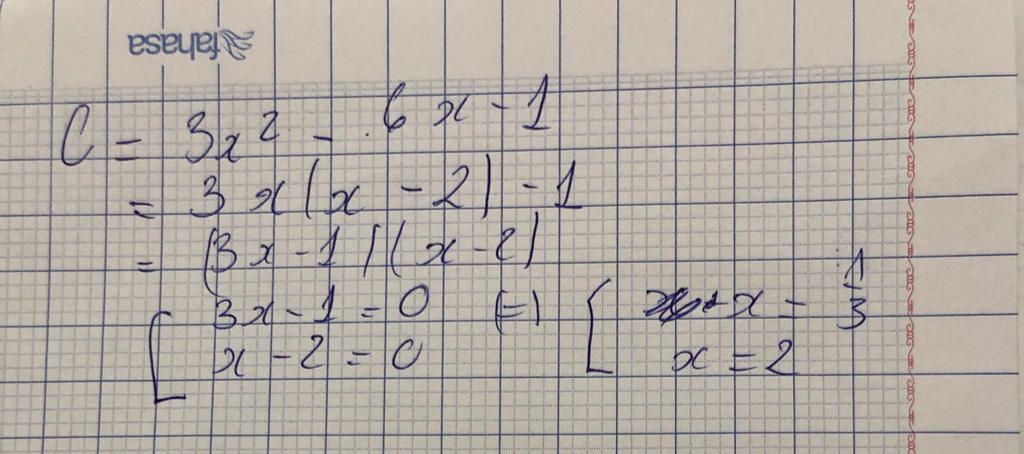 fahasa
C = 3x² - 6x - 1
= 3x(x - 2) - 1
= (3x - 1)(x - 2)
[ 3x - 1 = 0 (=) [ x = 1/3
x - 2 = 0 x = 2